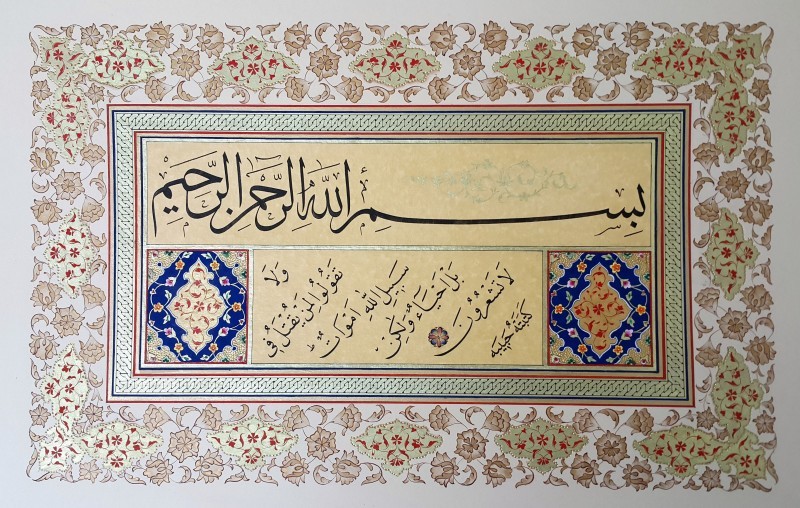 بِسْمِ اللهِ الرَّحْمٰنِ الرَّحِيمِ
وَلَا
تَقُولُوا لِمَنْ يُقْتَلُ فِي
سَبِيلِ اللهِ اَمْوَاتٌ ط
بَلْ اَحْيَاءٌ وَلٰكِنْ
لَا تَشْعُرُونَ
كتبته حبيبه